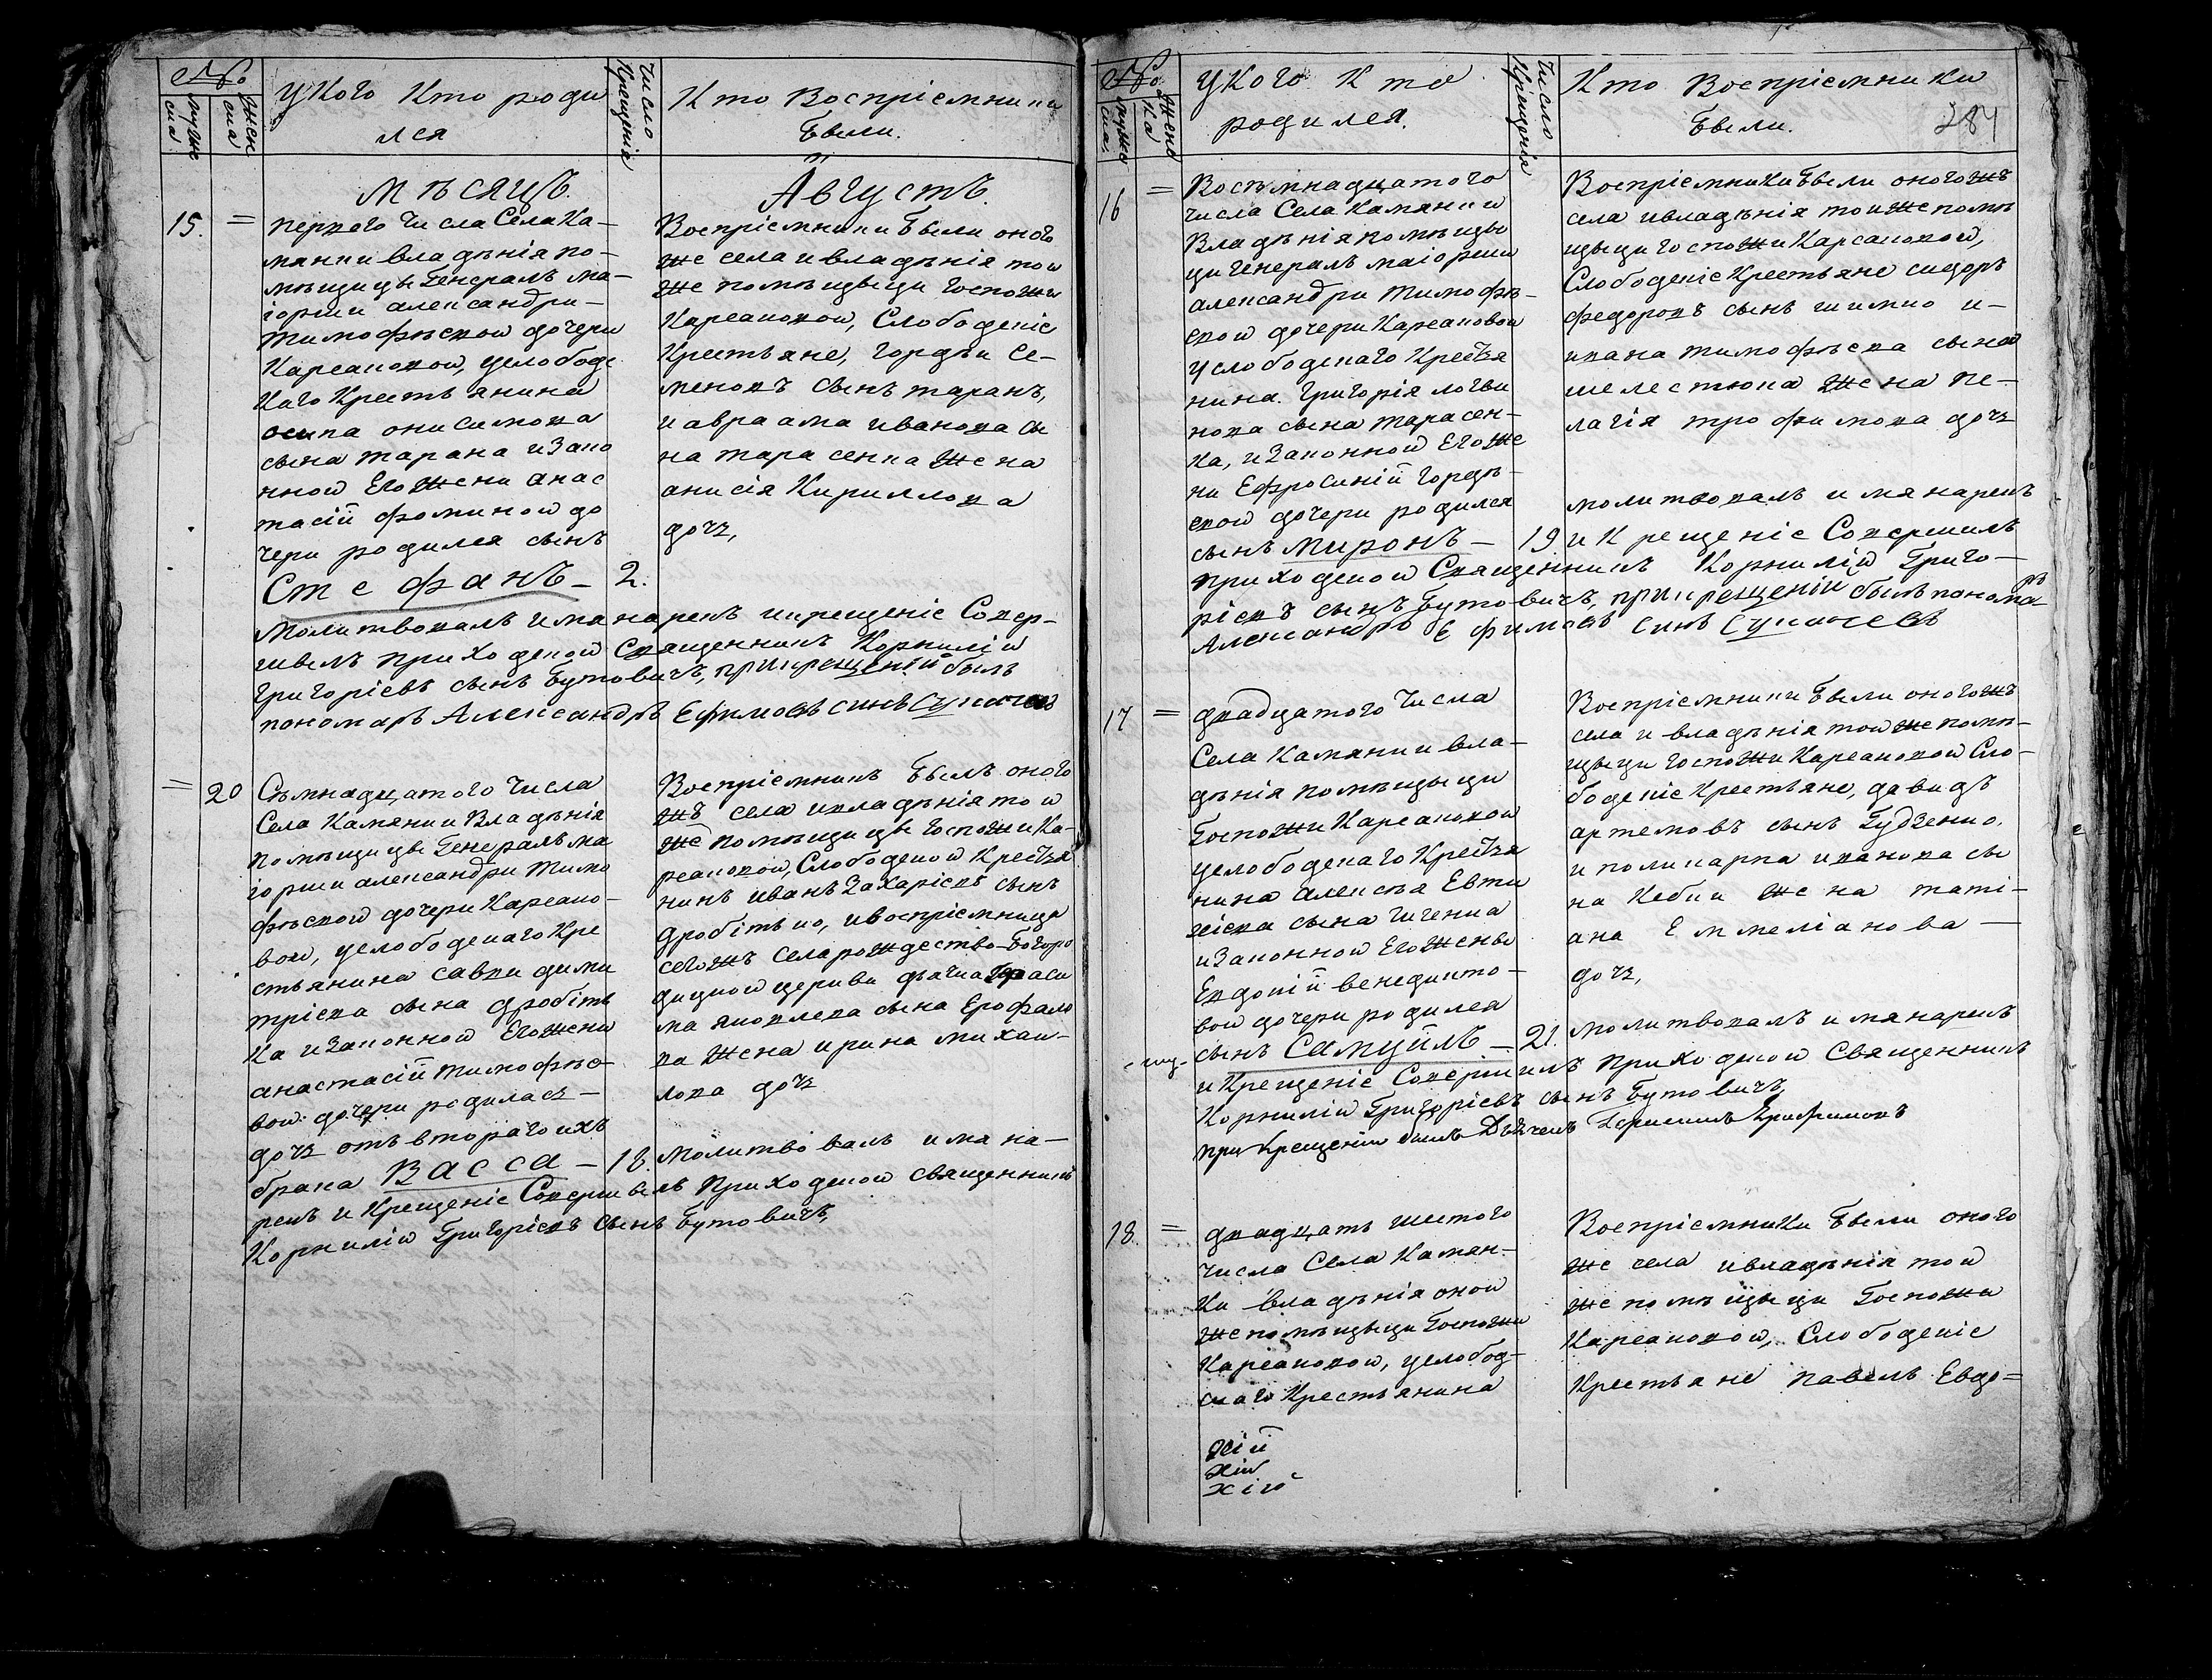 №
мужеска
женска
У Кого Кто роди
лся
Число
Крещенія
Кто Воспріемники
Были.
Мѣсяцъ.
Августъ.
15. =
первого Числа Села Ка-
мянки владѣнія по-
мѣщицы Генералъ ма-
іорши александри-
Тимофѣевой дочери
Карсаковой, услободс
Каго Крестьянина
осипа онисимова
сына тарана изако
нной Его Жени анас
тасіи фоминой до
чери родился сынъ
Стефанъ - 2.
Воспріемники Были оного
же села ивладѣнія той
же помѣщыци госпожи
Карсаковой, Слободскіе
Крестьяне, гордѣй Се-
меновъ сынъ таранъ,
и авраама иванова сы
на тарасенка жена
анисія Кириллова
дочь,
молитвовалъ имя нарекъ икрещеніе Совер-
шилъ приходской Священникъ Корнилій
григоріевъ сынъ Бутовичъ, прикрещеніи былъ
пономарь Александръ Ефимовъ синъ
= 20
Сѣмнадцатого Числа
Села Камянки Владѣнія
помѣщицы Генералъ ма
іорши александри Тимо
фѣевой дочери Карсако-
вой, услободскаго Кре
стьянина савви дими
тріева сына дробіть
ка изаконной Его жени
анастасіи тимофѣе-
вой дочери родилась -
дочь отъ втораго ихъ
брака Васса - 18.
Воспріемникъ Былъ оного
жъ села ивладѣнія той
же помѣщицы госпожи Ка-
рсаковой, Слободской Крестья
нинъ иванъ Захаріевъ сынъ
дробітько, ивоспріемница
сегожъ села рождество-Богоро
дицкой церкви дячка
ма яковлева сына Ерофало
ва жена ирина михаи-
лова дочь
молитвовалъ имя на-
рекъ и Крещеніе Совершилъ Приходской священникъ
Корнилій Григоріевъ Сынъ Бутовичъ,
№
мужеска
женска
У Кого Кто
родился.
Число
Крещенія
Кто Воспріемники
Были.
284
16 =
Восѣмнадцатого
числа Села Камянки
Владѣнія помѣщы
ци генералъ маіорши
александри тимофѣ-
евой дочери Карсаковой
услободскаго Крестья
нина григорія логви
нова сына тарасен-
ка, изаконной Его же
ни Ефросиніи гордѣ-
евой дочери родился
сынъ Миронъ - 19
Воспріемники Были оногожъ
села ивладѣнія тоиже помѣ
щыци госпожи Карсаковой,
Слободскіе Крестьяне сидоръ
федоровъ сынъ шимко и-
ивана тимофѣева сына
шелестюка жена пе-
лагія трофимова дочь
молитвовалъ имя нарекъ
и Крещеніе Совершилъ
приходской Священникъ Корнилій Григо-
ріевъ сынъ Бутовичъ, прикрещеніи былъ пономарь
Александръ Ефимовъ синъ
17 =
двадцатого Числа
Села Камянки вла-
дѣнія помѣщыци
Госпожи Карсаковой
услободскаго Крестья
нина алексѣя Евти
хіева сына чиченка
изаконной Его жены
Евдокіи венедикто-
вой дочери родился
сынъ Самуилъ - 21.
Воспріемники Были оногожъ
села и владѣнія той же помѣ-
щыци госпожи Карсаковой Сло-
бодскіе Крестьяне, давидъ
артемовъ сынъ Гудзенко.
и поликарпа иванова сы
на Кебки жена таті-
ана Еммеліанова -
дочь,
молитвовалъ имя нарекъ
и Крещеніе Совершилъ приходской Священникъ
Корнилій Григоріевъ сынъ Бутовичъ,
при Крещеніи былъ Дьячекъ
18. =
двадцать шестого
числа Села Камян-
ки владѣнія оной
же помѣщыци Госпожи
Карсаковой, услобод-
скаго Крестьянина
Воспріемники Были оного
же села ивладѣнія той
же помѣщыци Госпожи
Карсаковой, Слободскіе
Крестьяне павелъ Евдо=
хій
хій
хіи